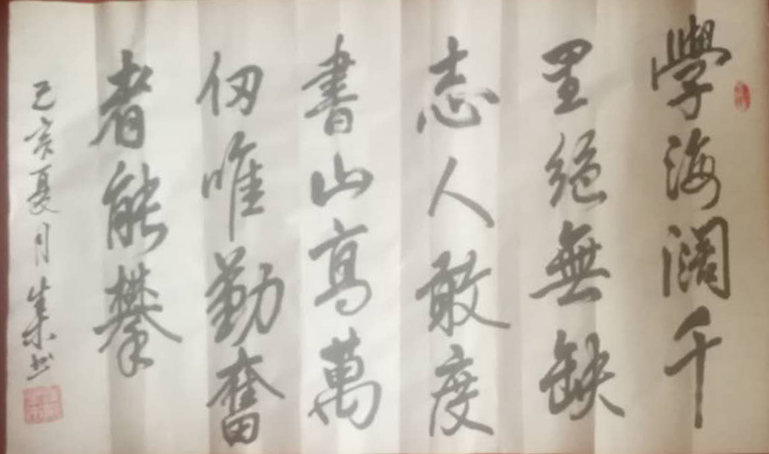 學海阔千
里絕無缺
志人敢度
書山高萬
仞唯勤奮
者能攀
己亥夏月